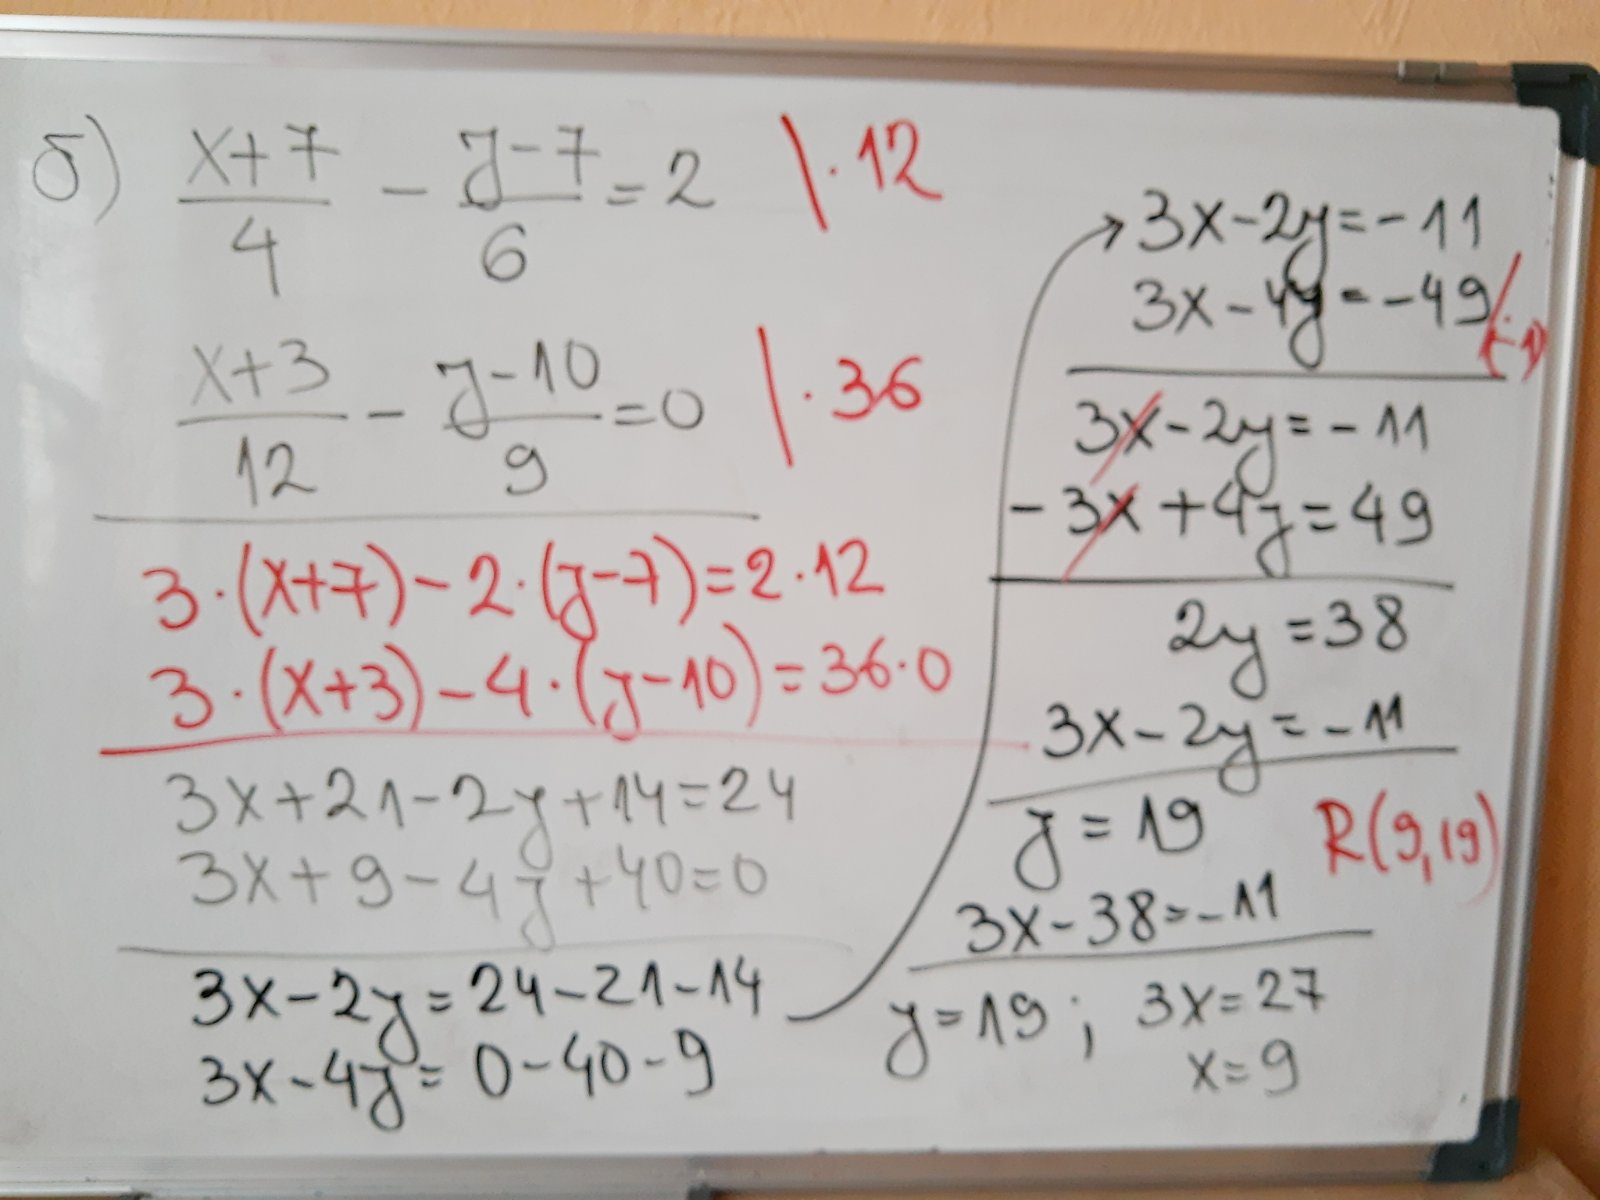 б) x+7/4 - y-7/6 = 2 | · 12
x+3/12 - y-10/9 = 0 | · 36
3·(x+7) - 2·(y-7) = 2·12
3·(x+3) - 4·(y-10) = 36·0
3x+21-2y+14=24
3x+9-4y+40=0
3x-2y=24-21-14
3x-4y=0-40-9
3x-2y=-11
3x-4y=-49 /·(-1)
3x-2y=-11
-3x+4y=49
2y=38
3x-2y=-11
y=19
R(9,19)
3x-38=-11
y=19; 3x=27
x=9